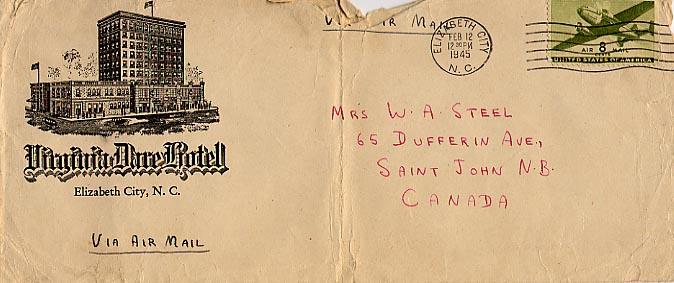 VIA AIR MAIL
ELIZABETH CITY
FEB 12
1945
N.C.
AIR 8 MAIL
CENTS
UNITED STATES OF AMERICA
Virginia Dare Hotel
Elizabeth City, N. C.
MRS W. A. STEEL
65 DUFFERIN AVE.,
SAINT JOHN N.B.
CANADA
VIA AIR MAIL